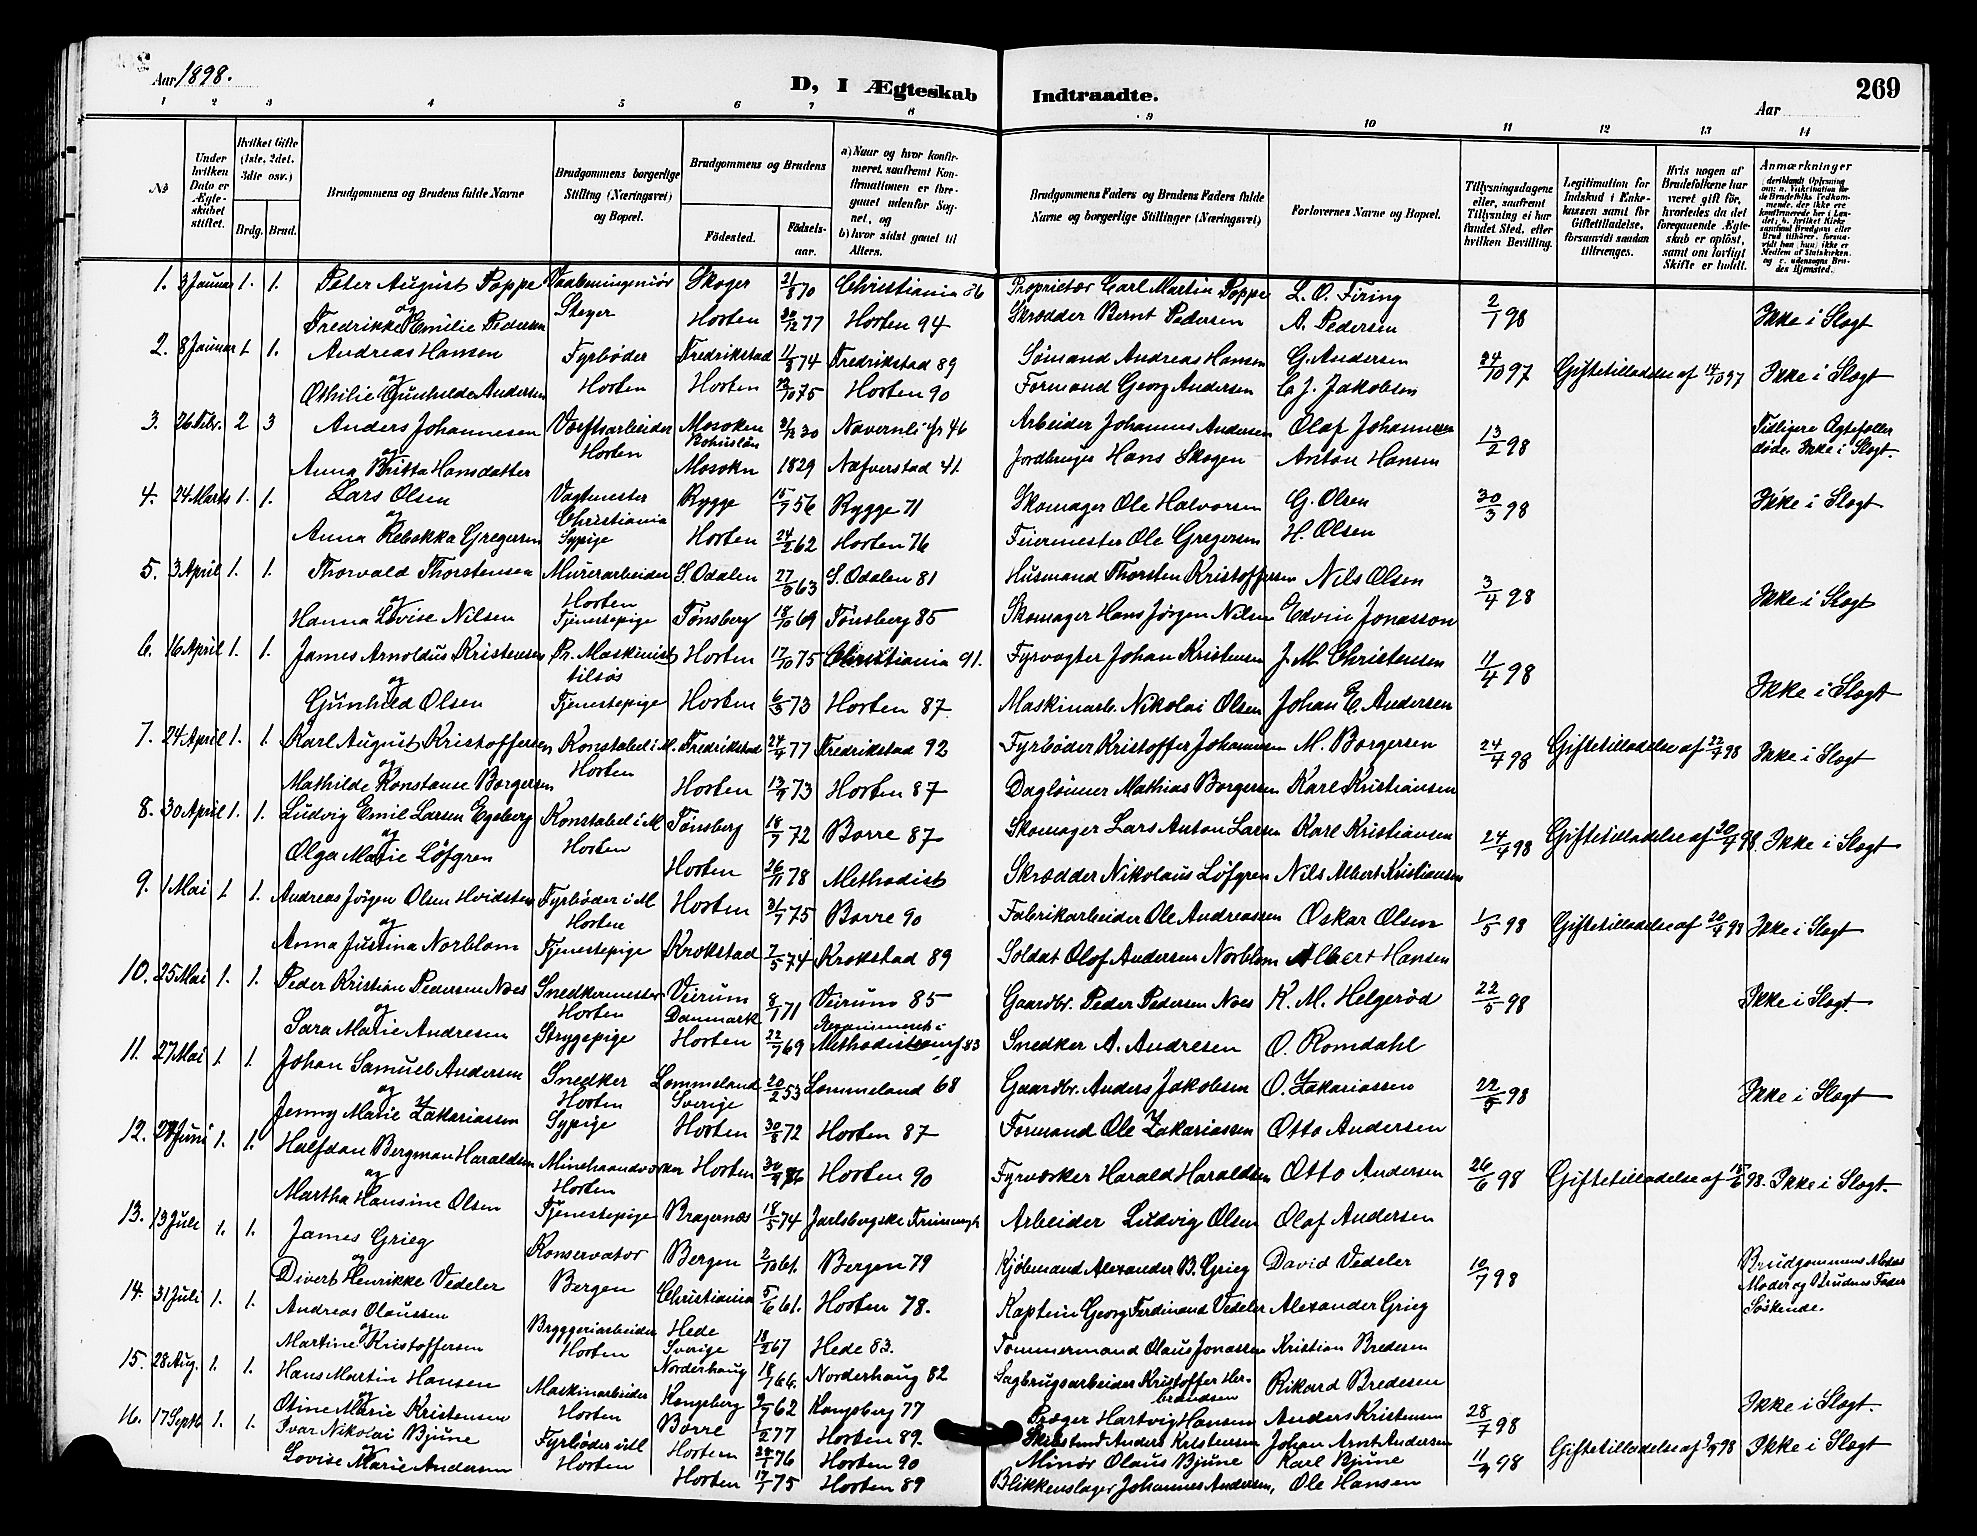 Aar 1898.
D, I Ægteskab Indtraadte.
269
Aar
1 2 3 4 5 6 7 8 9 10 11 12 13 14
No
Under hvilken Dato er Ægteskabet stiftet.
Hvilket Gifte (1ste, 2det, 3die osv.)
Brdg. Brud.
Brudgommens og Brudens fulde Navne
Brudgommens borgerlige Stilling (Næringsvei) og Bopæl.
Brudgommens og Brudens
Fødested.
Fødselsaar.
a) Naar og hvor konfirmeret, saafremt Konfirmationen er foregaaet udenfor Sognet, og
b) hvor sidst gaaet til Alters.
Brudgommens Faders og Brudens Faders fulde Navne og borgerlige Stillinger (Næringsvei)
Forlovernes Navne og Bopæl.
Tillysningsdagene eller, saafremt Tillysning ei har fundet Sted, efter hvilken Bevilling.
Legitimation for Indskud i Enkekassen samt for Giftetilladelse, forsaavidt saadan tiltrænges.
Hvis nogen af Brudefolkene har været gift før, hvorledes da det foregaaende Ægteskab er opløst, samt om lovligt Skifte er holdt.
Anmærkninger
1. 3 Januar 1. 1. Peter August Poppe Skoger 21/8 70 Christiania 86 Proprietær Carl Martin Poppe L. O. Firing 2/1 98 Ikke i Slægt
og Fredrikke Emilie Pedersen Horten 20/12 77 Horten 94 Skrædder Bernt Pedersen A. Pedersen
2. 8 Januar 1 1. Andreas Hansen Fyrbøder Fredrikstad 11/8 74 Fredrikstad 89 Sømand Andreas Hansen G. Andersen 24/10 97 Giftetilladelse af 14/10 97 Ikke i Slægt
og Othilie Gunhilde Andersen Horten Horten 22/10 75 Horten 90 Formand Georg Andersen C. J. Jakobsen
3. 26 Febr. 2 3 Anders Johannesen Værftsarbeider Mosoken Bohuslän 21/12 30 46 Arbeider Johannes Andersen Olaf Johannesen 13/2 98 Tidligere Ægtefæller døde. Ikke i Slægt.
og Anna Britta Hansdatter Horten 1829 Næfverstad 41. Jordbruger Hans Skogen Anton Hansen
4. 24 Marts 1. 1. Lars Olsen Vagtmester Christiania Rygge 15/7 56 Rygge 71 Skomager Ole Halvorsen G. Olsen 30/3 98 Ikke i Slægt
og Anna Rebekka Gregersen Sypige Horten 24/2 62 Horten 76 Feiermester Ole Gregersen H. Olsen
5. 3 April 1. 1. Thorvald Thorstensen Murerarbeider Horten S. Odalen 27/3 63 S. Odalen 81 Husmand Thorsten Kristoffersen Nils Olsen 3/4 98 Ikke i Slægt
og Hanna Lovise Nilsen Tjenestepige Tønsberg 18/10 69 Tønsberg 85 Skomager Hans Jørgen Nilsen Edvin Jonasson
6. 16 April 1. 1. James Arnoldus Kristensen Pr. Maskinist tilsøs Horten 17/10 75 Christiania 91. Fyrvogter Johan Kristensen J. M. Christensen 11/4 98 Ikke i Slægt
og Gunhild Olsen Tjenestepige Horten 6/3 73 Horten 87 Maskinarb. Nikolai Olsen Johan E. Andersen
7. 24 April 1. 1. Karl August Kristoffersen Konstabel i M. Horten Fredrikstad 24/4 77 Fredrikstad 92 Fyrbøder Kristoffer Johannesen M. Borgersen 24/4 98 Giftetilladelse af 22/4 98 Ikke i Slægt
og Mathilde Konstanse Borgersen Horten 13/9 73 Horten 87 Daglønner Mathias Borgersen Karl Kristiansen
8. 30 April 1. 1. Ludvig Emil Larsen Egeberg Konstabel i M Horten Tønsberg 18/7 72 Borre 87 Skomager Lars Anton Larsen Karl Kristiansen 24/4 98 Giftetilladelse af 20/4 98. Ikke i Slægt
og Olga Marie Löfgren Horten 26/11 78 Methodist Skrædder Nikolaus Löfgren Nils Albert Kristiansen
9. 1 Mai 1 1. Andreas Jørgen Olsen Hvidsten Fyrbøder i M Horten Horten 31/7 75 Borre 90 Fabrikarbeider Ole Andreassen Oskar Olsen 1/5 98 Giftetilladelse af 20/4 98 Ikke i Slægt
og Anna Justina Norblom Tjenestepige Krokstad 7/5 74 Krokstad 89 Soldat Olof Andersen Norblom Albert Hansen
10. 25 Mai 1. 1. Peder Kristian Pedersen Noes Snedkermester Horten Veirum Danmark 8/1 71 Veirum 85 Gaardbr. Peder Pedersen Noes K. M. Helgerød 22/5 98 Ikke i Slægt.
og Sara Marie Andresen Strygepige Horten 22/7 69 83 Snedker A. Andresen O. Romdahl
11. 27 Mai 1 1. Johan Samuel Andersen Snedker Horten Lommeland Sverige 20/2 53 Lommeland 68 Gaardbr. Anders Jakobsen O. Zakariassen 22/5 98 Ikke i Slægt
og Jenny Marie Zakariassen Sypige Horten 30/8 72 Horten 87 Formand Ole Zakariassen Otto Andersen
12. 28 Juni 1. 1. Halfdan Bergman Haraldsen Minehaandværker Horten Horten 30/9 76 Horten 90 Fyrværker Harald Haraldsen Otto Andersen 26/6 98 Giftetilladelse af 15/6 98. Ikke i Slægt.
og Martha Hansine Olsen Tjenestepige Bragernæs 18/5 74 Jarlsbergske Frimenigh Arbeider Ludvig Olsen Olaf Andersen
13. 13 Juli 1. 1. James Grieg Konservator Bergen Bergen 2/10 61. Bergen 79 Kjøbmand Alexander B. Grieg David Vedeler 10/7 98 Brudgommens Moders Moder og Brudens Fader Søskende.
og Divert Henrikke Vedeler Christiania 5/6 61. Horten 78. Kaptein Georg Ferdinand Vedeler Alexander Grieg
14. 31 Juli 1. 1. Andreas Olaussen Bryggeriarbeider Horten Hede Sverige 18/2 67 Hede 83. Tømmermand Olaus Jonassen Kristian Bredesen
og Martine Kristoffersen Norderhaug 18/7 66. Norderhaug 82 Sagbrugsarbeider Kristoffer Herbrandsen Rikard Bredesen
15. 28 Aug. 1. 1. Hans Martin Hansen Maskinarbeider Horten Kongsberg 9/7 62 Kongsberg 77 Præger Hartvig Hansen Anders Kristensen 28/7 98 Ikke i Slægt.
og Otine Marie Kristensen Borre 1/2 77 Horten 89. Anders Kristensen Johan Arnt Andersen
16. 17 Septb. 1. 1. Ivar Nikolai Bjune Fyrbøder i M Horten Horten 20/1 76 Horten 90 Minør Olaus Bjune Karl Bjune 11/9 98 Giftetilladelse af 9/9 98 Ikke i Slægt
og Lovise Marie Andersen Horten 17/1 75 Horten 89 Blikkenslager Johannes Andersen, Ole Hansen